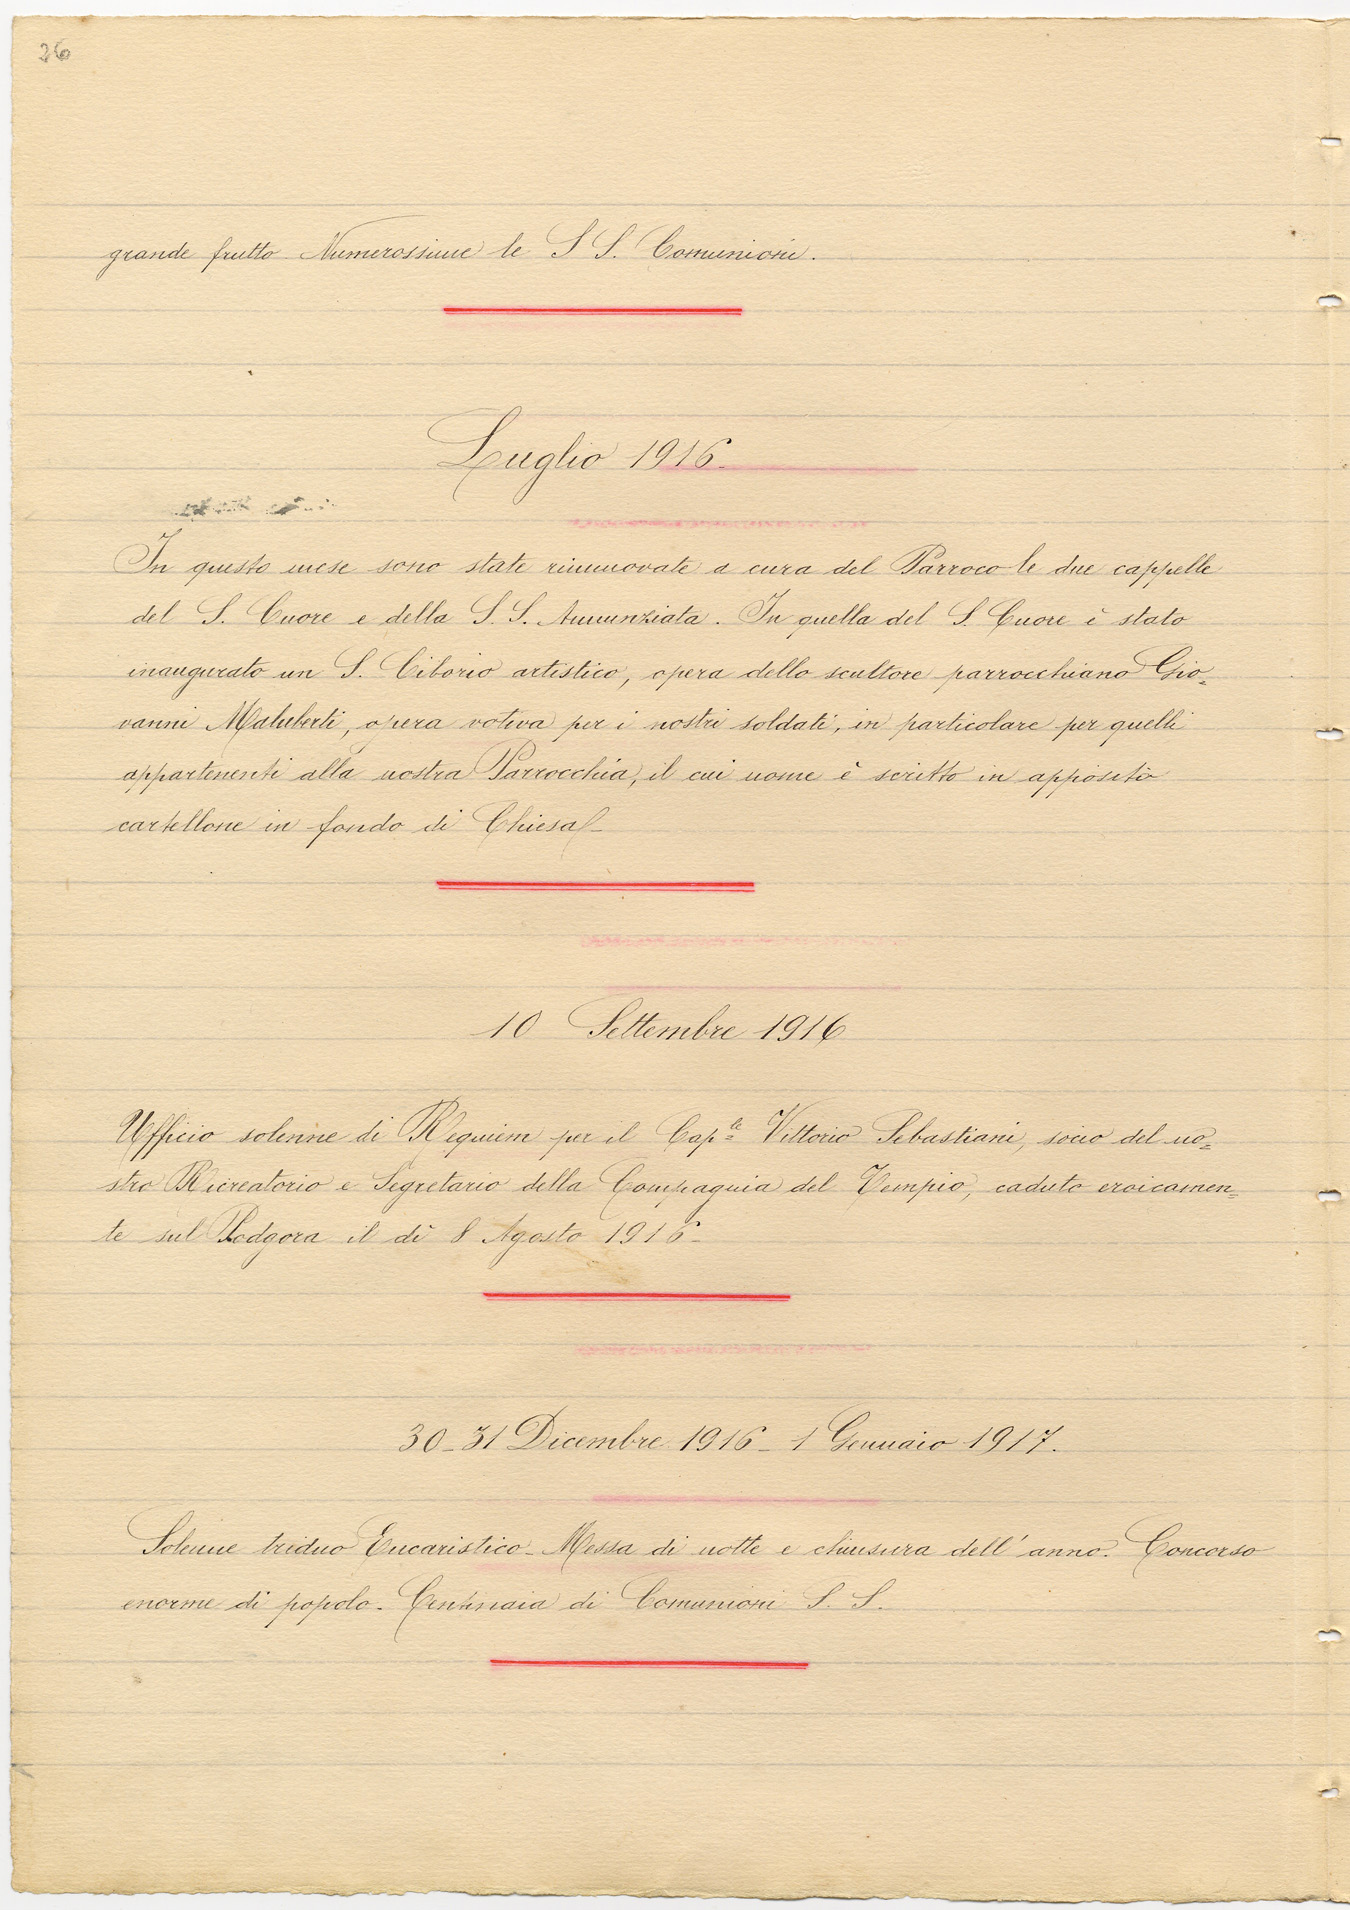 26
grande frutto. Numerossime le S S. Comunioni.
Luglio 1916.
In questo mese sono state rinnuovate a cura del Parroco le due cappelle
del S. Cuore e della S. S. Annunziata. In quella del S. Cuore è stato
inaugurato un S. Ciborio artistico, opera dello scultore parrocchiano Gio=
vanni Maluberti, opera votiva per i nostri soldati, in particolare per quelli
appartenenti alla nostra Parrocchia, il cui nome è scritto in apposito
cartellone in fondo di Chiesa -
10 Settembre 1916
Ufficio solenne di Requiem per il Cap.le Vittorio Sebastiani, socio del no=
stro Ricreatorio e Segretario della Compagnia del Tempio, caduto eroicamen=
te sul Podgora il dì 8 Agosto 1916-
30-31 Dicembre 1916 - 1 Gennaio 1917.
Solenne triduo Eucaristico - Messa di notte e chiusura dell'anno. Concorso
enorme di popolo. Centinaia di Comunioni S. S.